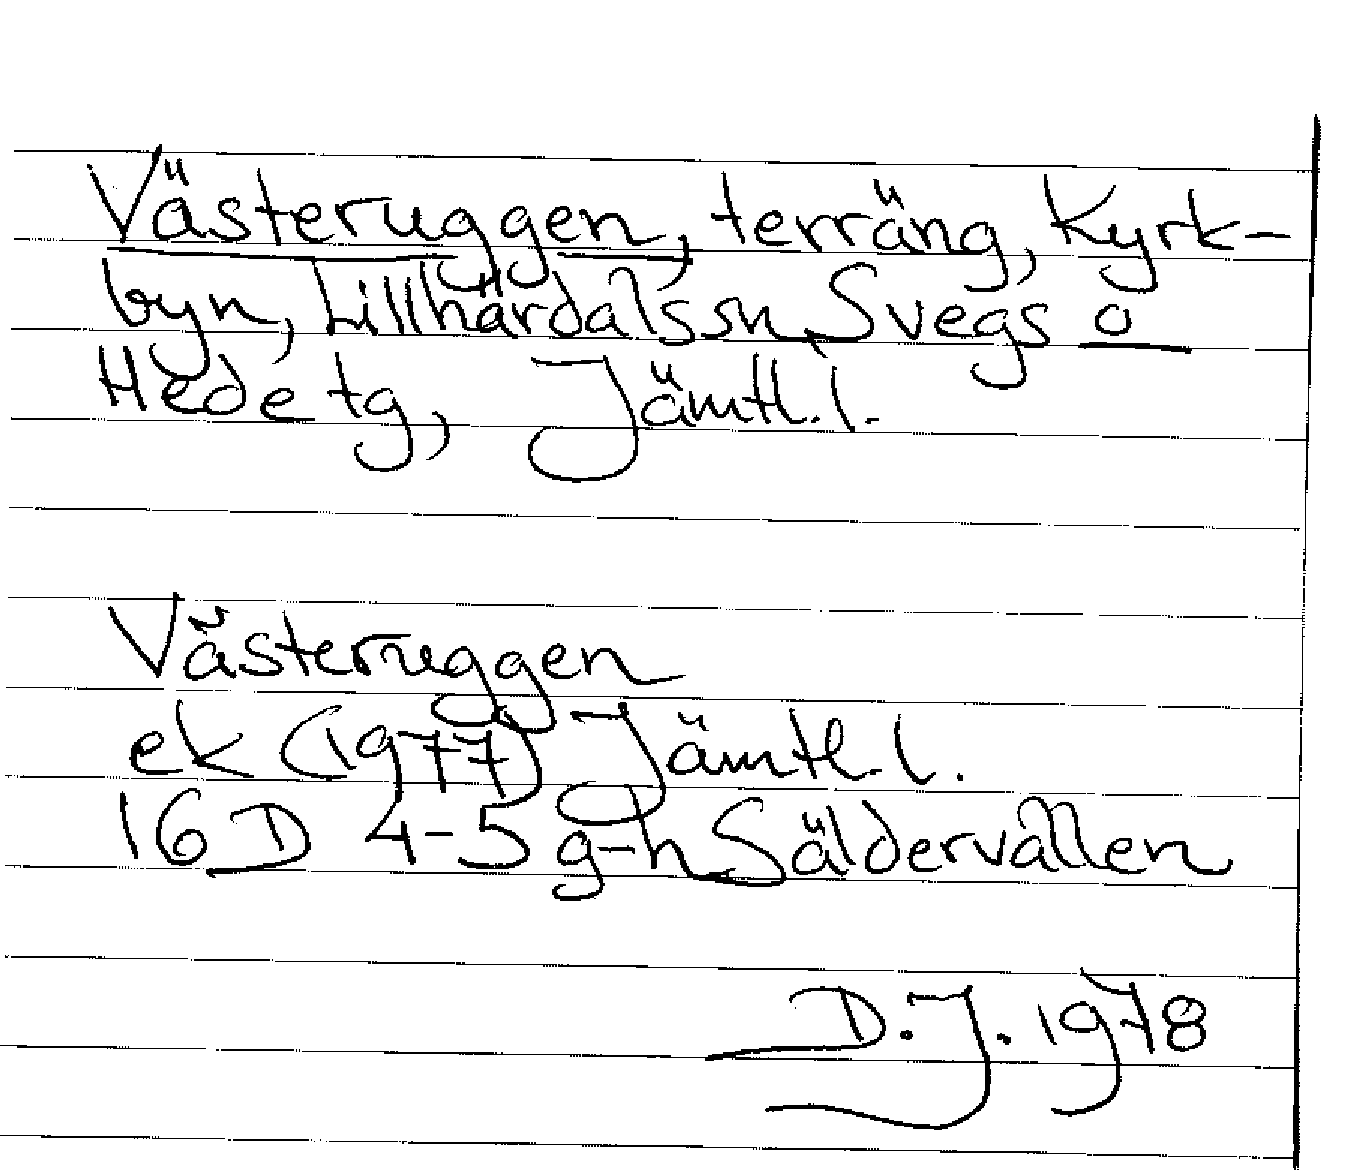 Västeruggen, terräng, Kyrk-
byn, Lillhärdalssn, Svegs o
Hede tg, Jämtl. l.
Västeruggen
ek (1977) Jämtl. l.
16 D 4-5 g-h Säldervallen
D.J. 1978